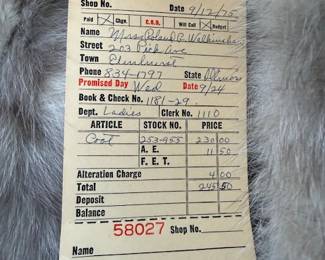 Shop No. Date 9/12/75
Paid X Chge. C.O.D. Will Call Budget X
Name Mrs. Roland C.
Street 203 Park Ave
Town Elmhurst
Phone 834-1797 State Illinois
Promised Day Wed Date 9/24
Book & Check No. 1181-29
Dept. Ladies Clerk No. 1110
ARTICLE STOCK NO. PRICE
Coat 253-955 230 00
A. E. 11 50
F. E. T.
Alteration Charge 4 00
Total 245 50
Deposit
Balance
58027 Shop No.
Name